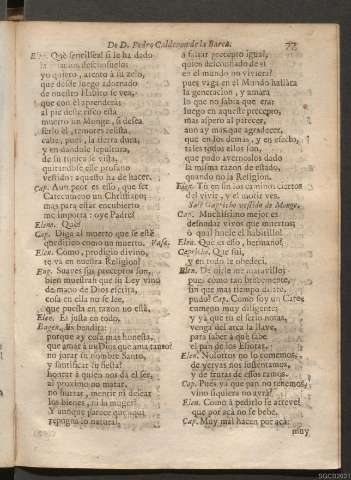 De D. Pedro Calderon de la Barca. 77
Ele. Què sencillèz! si le ha dado
yo quiero, atento à su zelo,
que desde luego adornado
de nuestro Habito se vea,
que con èl aprenderàs
al pie deste risco està
muerto un Monge, si desea
serlo èl,
cabe, pues, la tierra dura,
y en dandole sepultura,
de su tunica se vista,
quitandole esse profano
vestido: aquesto ha de hacer.
Cap. Aun peor es esso, que ser
Catecumeno un Christiano;
mas para estar encubierto
me importa: oye Padre!
Elen. Què?
Cap. Diga al muerto que se estè
quedito como un muerto. Vase.
Elen. Como, prodigio divino,
te và en nuestra Religion?
Eug. Suaves sus preceptos son,
bien muestran que su Ley vino
de mano de Dios escrita,
cosa en ella no se lee,
que puesta en razon no estè.
Elen. Es justa en todo,
Eugen. Es bendita:
porque ay cosa mas honesta,
que amar à un Dios que amò tanto?
no jurar su nombre Santo,
y santificar su fiesta?
honrar à quien nos dà el ser,
al proximo no matar,
no hurtar, mentir ni desear
los bienes, ni la muger?
Y aunque parece que aqui
repugna lo natural,
a faltar precepto igual,
quien desconfiado de si
en el mundo no viviera?
pues vaga en el Mundo hallàra
la generacion, y amàra
lo que no sabia que era:
luego en aqueste precepto,
mas aspero al parecer,
aun ay mas que agradecer,
que en los demàs, y en efecto,
si es
que pudo avernoslos dado
la misma razon de estado,
quando no la Religion.
Elen. Tù en fin los caminos ciertos
del vivir, y el morir ves.
Sale Capricho vestido de Monge.
Cap. Muchissimo mejor es
desnudar vivos que muertos;
ò què huele el habitillo!
Elen. Què es esso, hermano?
Capricho. Que fui,
y en todo le obedecì.
Elen. De oirle me maravillo:
pues como tan brebemente,
sin que mas tiempo
pudo? Cap. Como soy un Catecumeno
muy diligente;
y yà que tù el serlo notas,
venga del arca la llave,
para saber à què sabe
el pan de los Essotas.
Elen. Nosotros no lo comemos,
de yervas nos sustentamos,
y de frutas de essos ramos.
Cap. Pues yà que pan no tenemos,
vino siquiera no avrà?
Elen. Como à pedirlo se atreve?
que por acà no se bebe.
Cap. Muy mal hacen por acà:
muy
SGCB2021